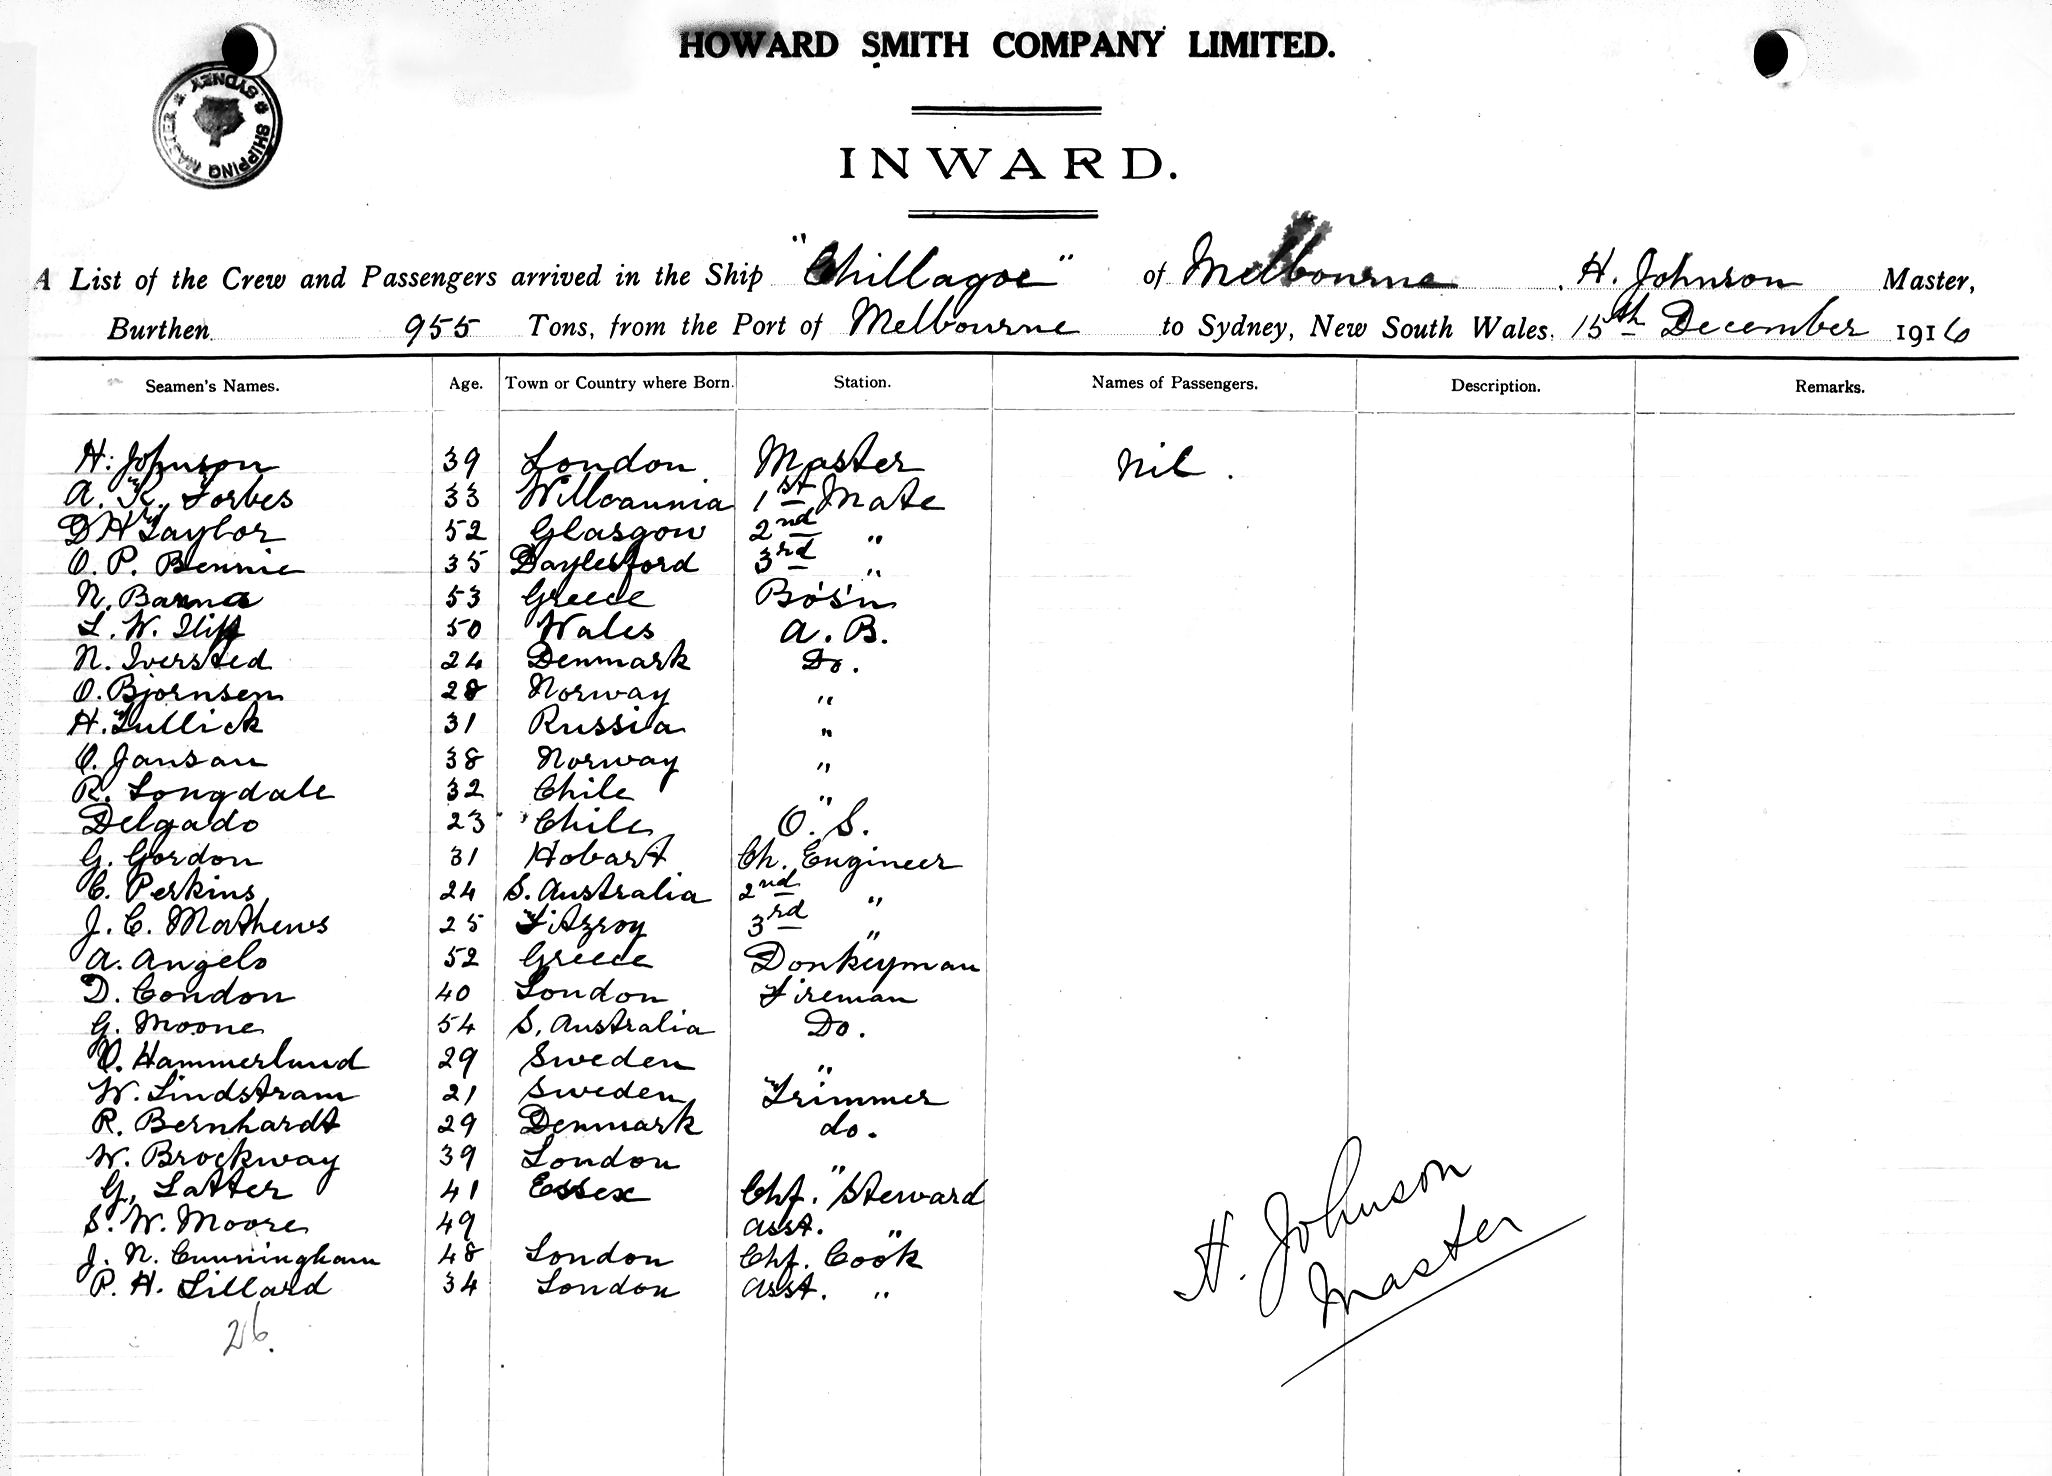 HOWARD SMITH COMPANY LIMITED.
SHIPPING MASTER SYDNEY
INWARD.
A List of the Crew and Passengers arrived in the Ship "Chillagoe" of Melbourne, H. Johnson Master,
Burthen 955 Tons, from the Port of Melbourne to Sydney, New South Wales. 15th December 1916
Seamen's Names. Age. Town or Country where Born. Station. Names of Passengers. Description. Remarks.
H. Johnson 39 London Master Nil.
A. K. Forbes 33 Willcannia 1st Mate
D H Taylor 52 Glasgow 2nd "
O. P. Bennie 35 Daylesford 3rd "
N. Barna 53 Greece Bos'n
L. W. Iliff 50 Wales A. B.
N. Iversted 24 Denmark Do.
O. Bjornsen 28 Norway "
H. Tullick 31 Russia "
O. Jansan 38 Norway "
R. Longdale 32 Chile "
Delgado 23 Chile O. S.
G. Gordon 31 Hobart Ch. Engineer
C. Perkins 24 S. Australia 2nd "
J. C. Mathews 25 Fitzroy 3rd "
A. Angelo 52 Greece Donkeyman
D. Condon 40 London Fireman
G. Moone 54 S. Australia Do.
O. Hammerlund 29 Sweden "
W. Lindstram 21 Sweden Trimmer
R. Bernhardt 29 Denmark do.
W. Brockway 39 London "
G. Latter 41 Essex Chf. Steward
S. W. Moore 49 Asst. "
J. N. Cunningham 48 London Chf. Cook
P. H. Lillard 34 London Asst. "
26.
H. Johnson
Master